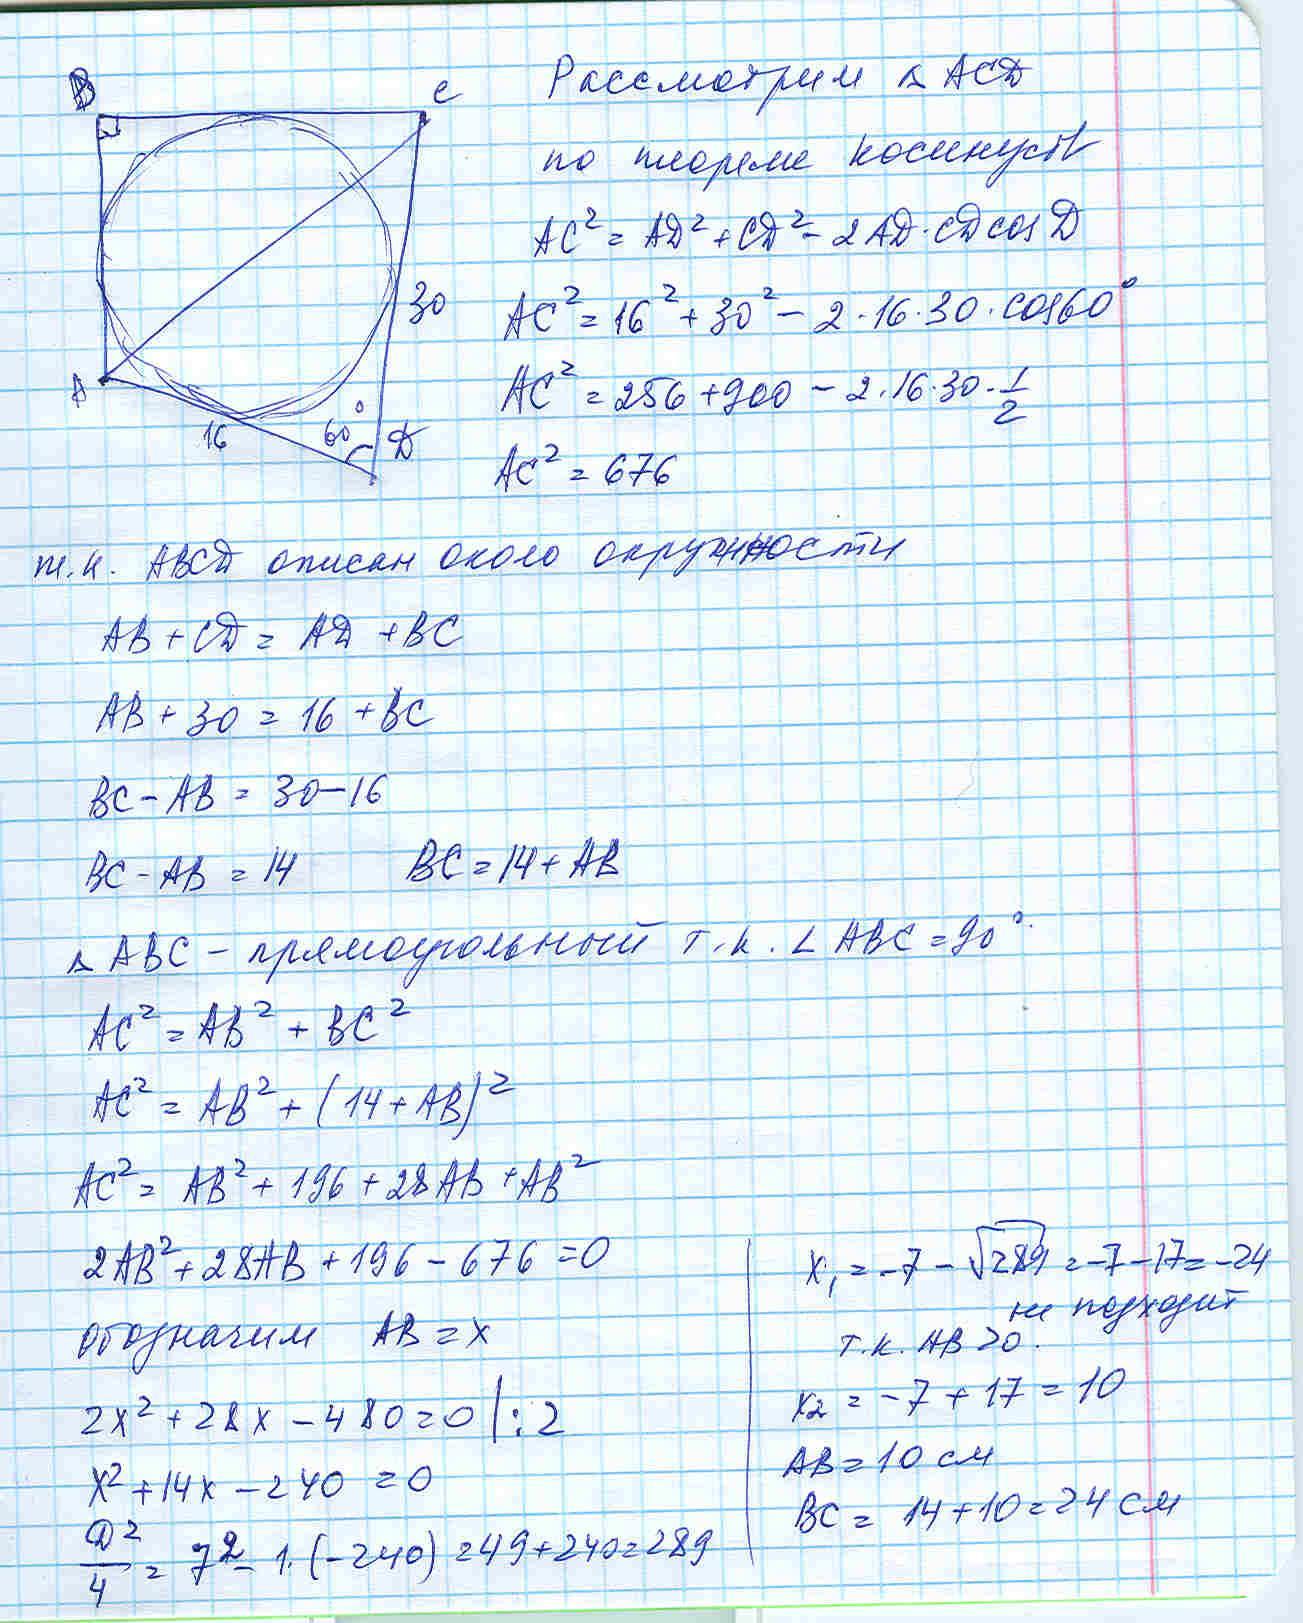 B
C
A
D
30
16
60°
Рассмотрим △ ACD
по теореме косинусов
AC² = AD² + CD² - 2AD·CD cos D
AC² = 16² + 30² - 2·16·30·cos60°
AC² = 256 + 900 - 2·16·30·1/2
AC² = 676
т.к. ABCD описан около окружности
AB + CD = AD + BC
AB + 30 = 16 + BC
BC - AB = 30-16
BC - AB = 14    BC = 14 + AB
△ ABC - прямоугольный т.к. ∠ ABC = 90°.
AC² = AB² + BC²
AC² = AB² + (14 + AB)²
AC² = AB² + 196 + 28AB + AB²
2AB² + 28AB + 196 - 676 = 0
обозначим AB = x
2x² + 28x - 480 = 0 | : 2
x² + 14x - 240 = 0
D²/4 = 7² - 1·(-240) = 49 + 240 = 289
x₁ = -7 - √289 = -7-17 = -24
не подходит
т.к. AB > 0.
x₂ = -7 + 17 = 10
AB = 10 см
BC = 14 + 10 = 24 см